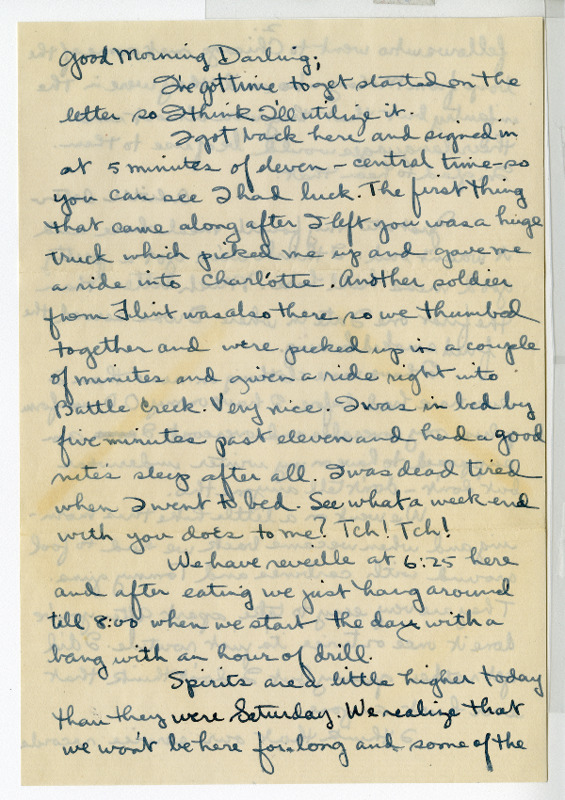 Good Morning Darling;
I've got time to get started on the
letter so I think I'll utilize it.
I got back here and signed in
at 5 minutes of eleven - central time - so
you can see I had luck. The first thing
that came along after I left you was a huge
truck which picked me up and gave me
a ride into Charlotte. Another soldier
from Flint was also there so we thumbed
together and were picked up in a couple
of minutes and given a ride right into
Battle Creek. Very nice. I was in bed by
five minutes past eleven and had a good
nite's sleep after all. I was dead tired
when I went to bed. See what a week-end
with you does to me? Tch! Tch!
We have reveille at 6:25 here
and after eating we just hang around
till 8:00 when we start the day with a
bang with an hour of drill.
Spirits are a little higher today
than they were Saturday. We realize that
we won't be here for long and some of the